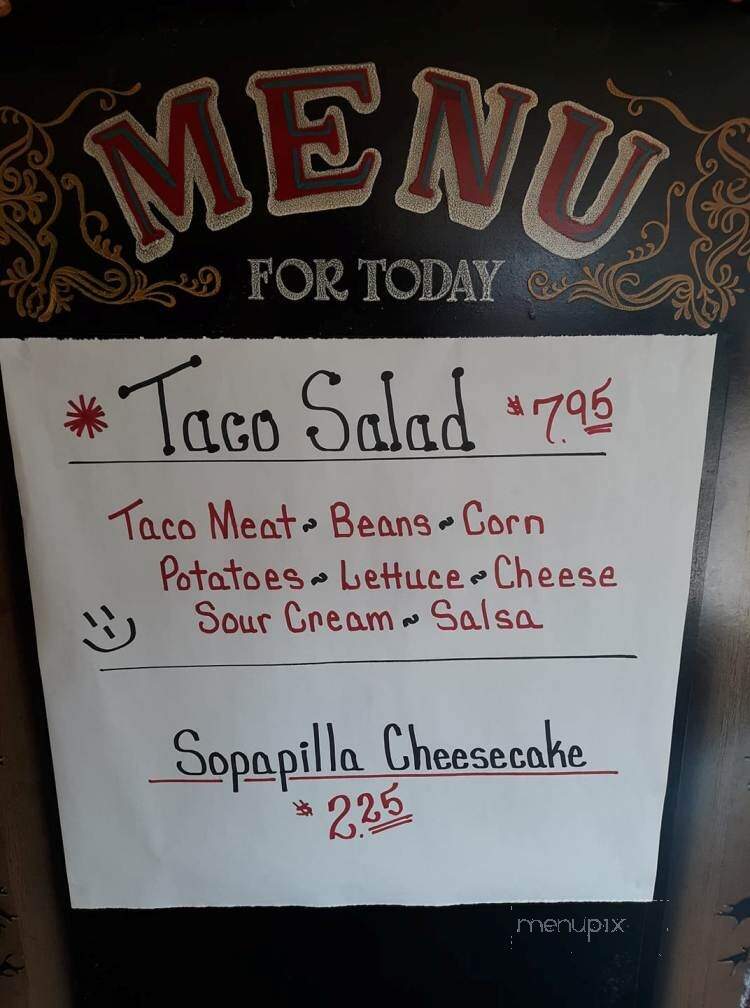 MENU
FOR TODAY
* Taco Salad $7.95
Taco Meat ~ Beans ~ Corn
Potatoes ~ Lettuce ~ Cheese
Sour Cream ~ Salsa
Sopapilla Cheesecake
$2.25
menupix